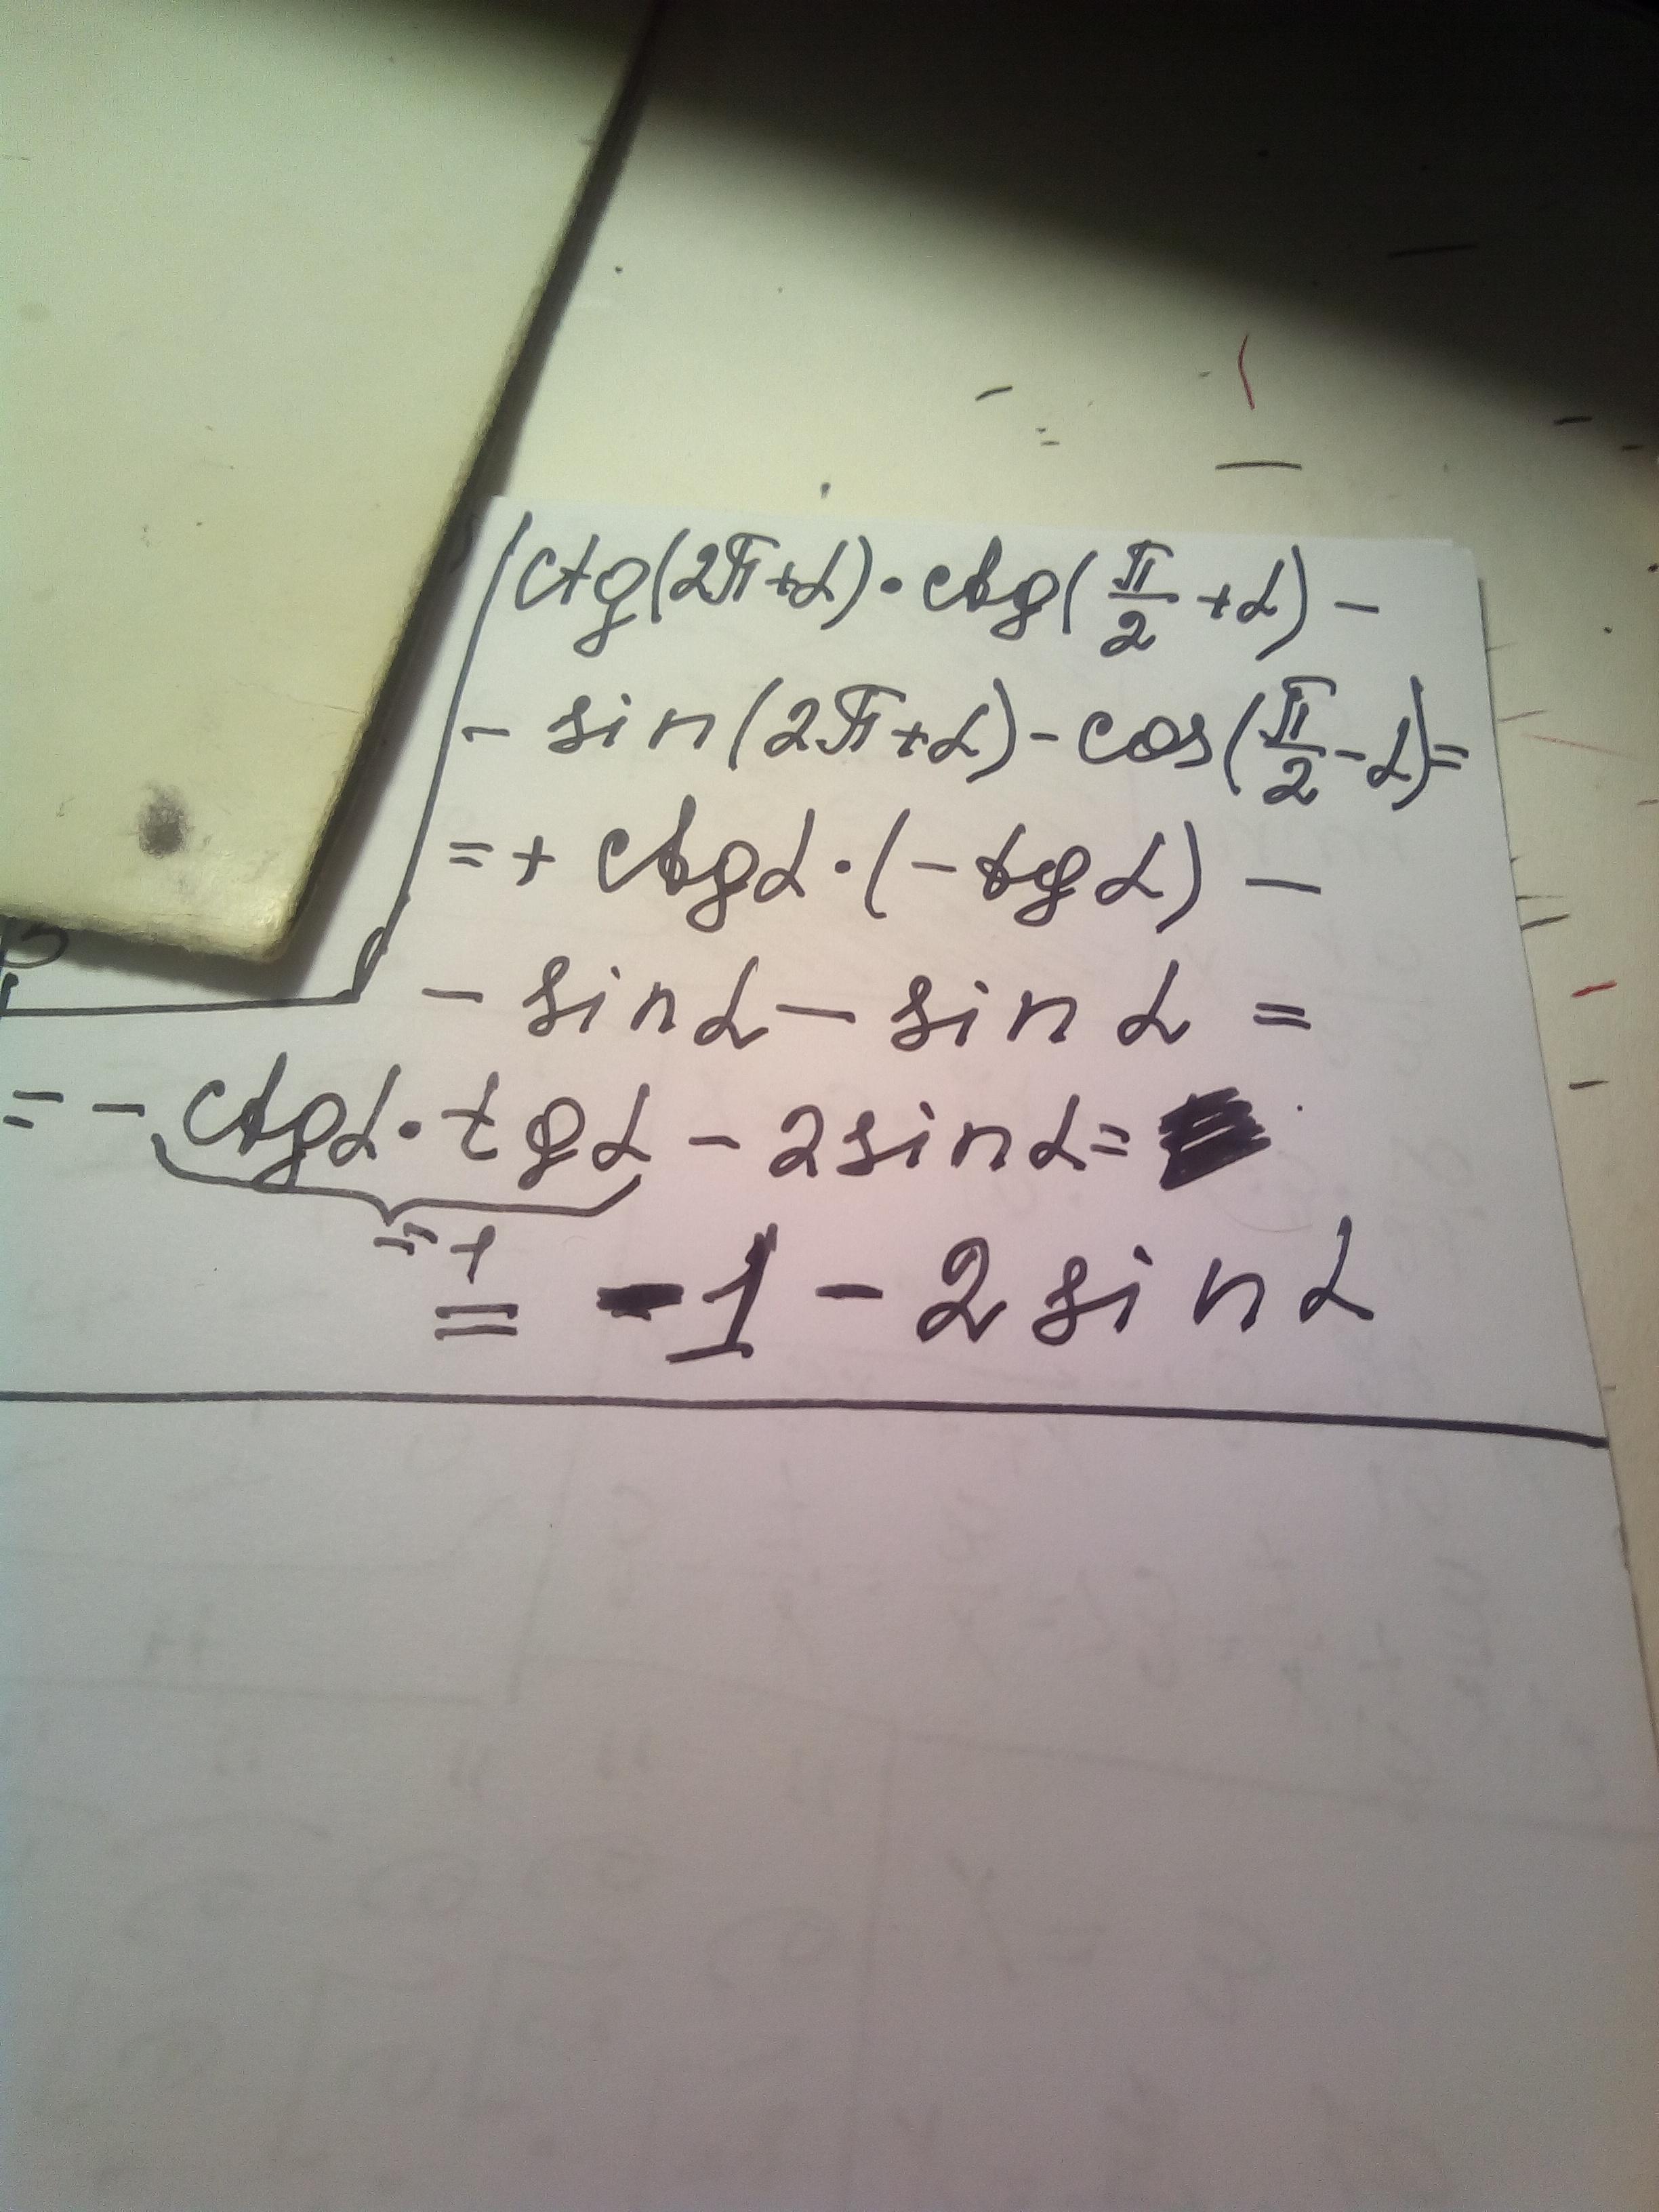 ctg(2π+α)·ctg(π/2+α)-
- sin(2π+α)-cos(π/2-α)=
=+ ctgα·(-tgα) -
- sinα - sin α =
= - ctgα·tgα - 2sinα=
=1
= -1 - 2 sin α